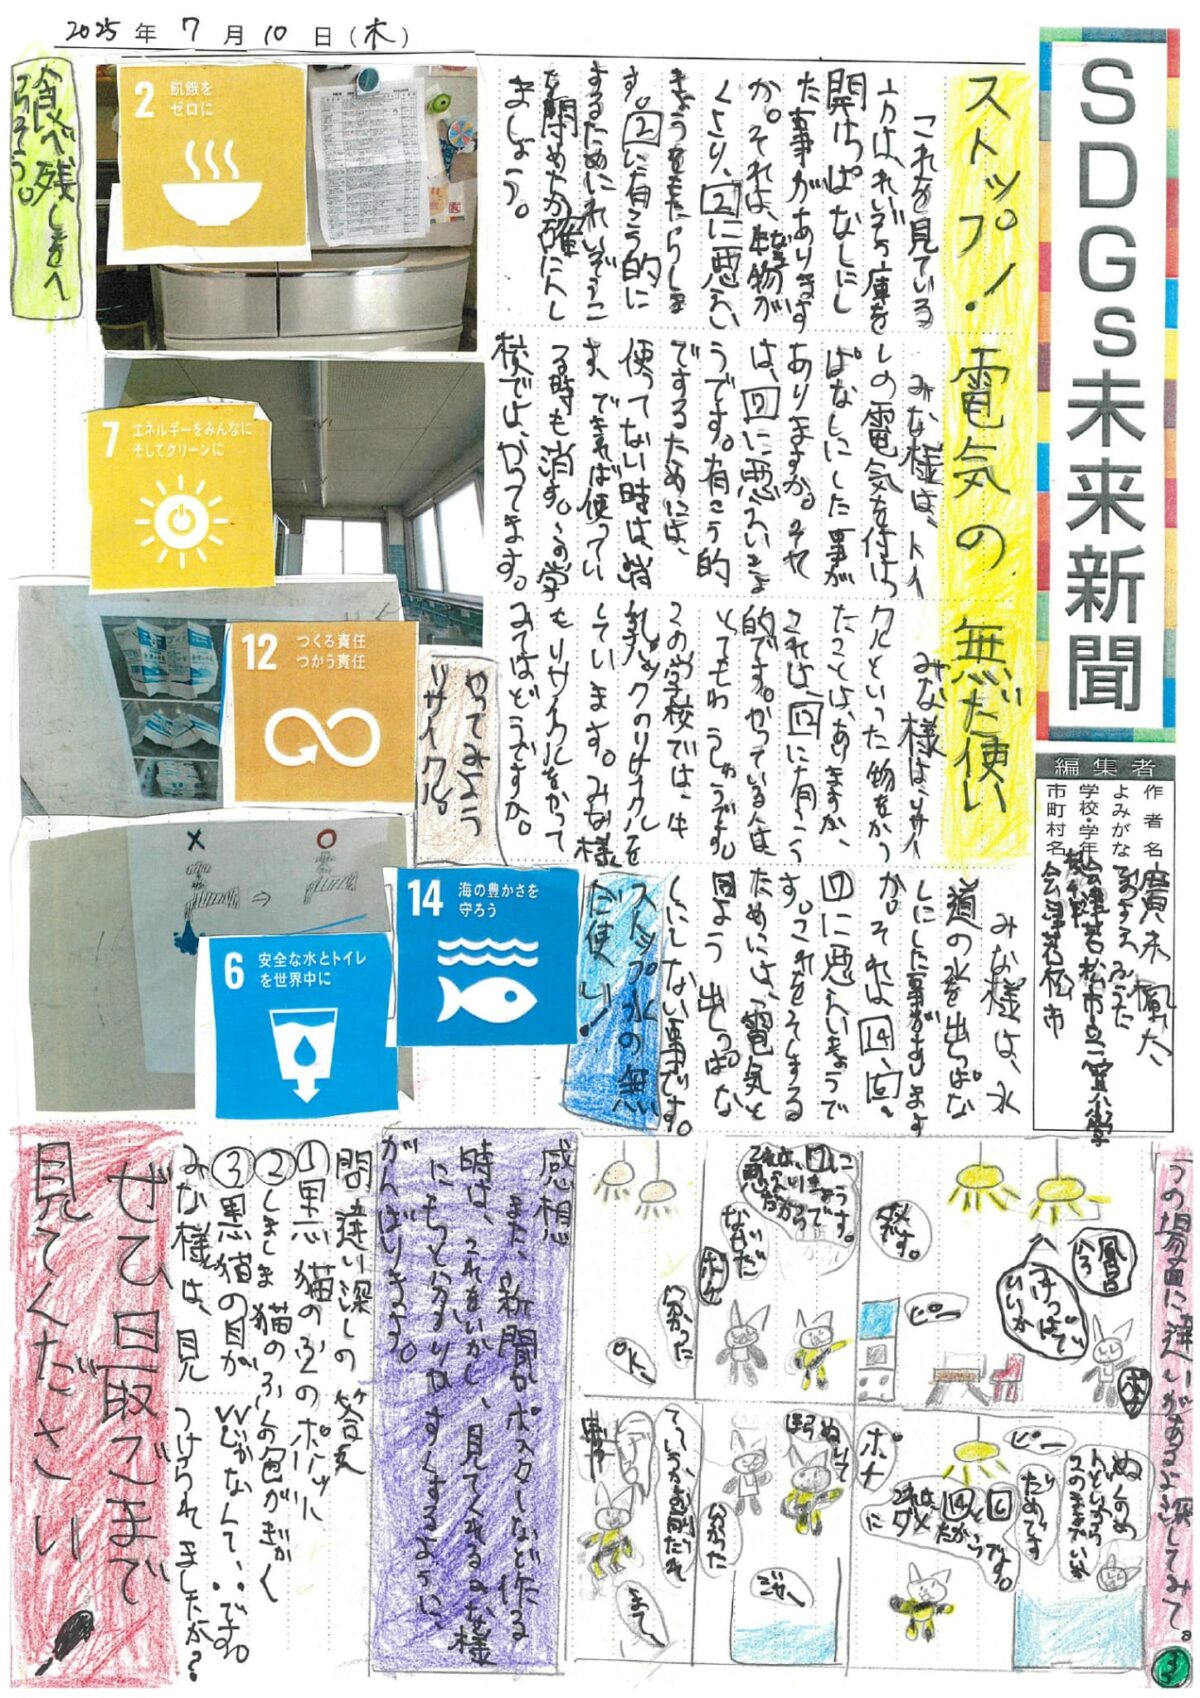 2025年 7月10日(木)
SDGs未来新聞
編集者
作者名
よみがな
学校・学年
市町村名
会津若松市
ストップ!電気の無だ使い
これを見ている
方は、れいぞう庫を
開けっぱなしにし
た事がありますか
か。それは、生物が
くさり、2に悪い
きょうをもたらしま
す。2に有こう的に
するためにれいぞうこ
を閉めたか確にんし
ましょう。
みな様は、トイ
レの電気を付けっ
ぱなしにした事が
ありますか。それ
は、7に悪いえいきょ
うです。有こう的
にするためには、
使ってない時は、消
す、できれば使ってい
る時も消す。この学
校でよ、かってます。
みな様は、リサイ
クルといった物をやっ
たことは、ありますか、
これは、12に有こう
的です。やっている人は
とってもゆうしゅうです。
この学校では、牛
乳パックのリサイクルを
しています。みな様
もリサイクルをやって
みてはどうですか。
みな様は、水
道の水を出しっぱな
しにした事があります
か。それは14、6、
17に悪いえいきょうで
す。これをそしする
ためには、電気と
同よう出しっぱな
しにしない事です。
食べ残しをへ
らそう。
2 飢餓を
ゼロに
7 エネルギーをみんなに
そしてクリーンに
12 つくる責任
つかう責任
やってみよう
リサイクル。
×
○
14 海の豊かさを
守ろう
6 安全な水とトイレ
を世界中に
ストップ水の無
だ使い!
うの場面に違いがあるよ探してみて。
風呂
入ろ
つけっぱで
いいか
ピー
ダメです。
なぜだ
分かった
OK。
ぬるめ
このままでいいか
ピー
だめです
ポチ
これは
ぬいて
分かった
ジャー
まて〜
感想
また、新聞かポスターなど作る
時は、これをいかし、見てくれるみな様
にもっと分かりやすくするように、
がんばりきる。
間違い探しの答え
①黒猫のふくのポッケに
②しましま猫のふくの色がぎゃく
③黒猫の目がいじがなくて、・・です。
みな様は、見つけられましたか?
ぜひ最ごまで
見てください